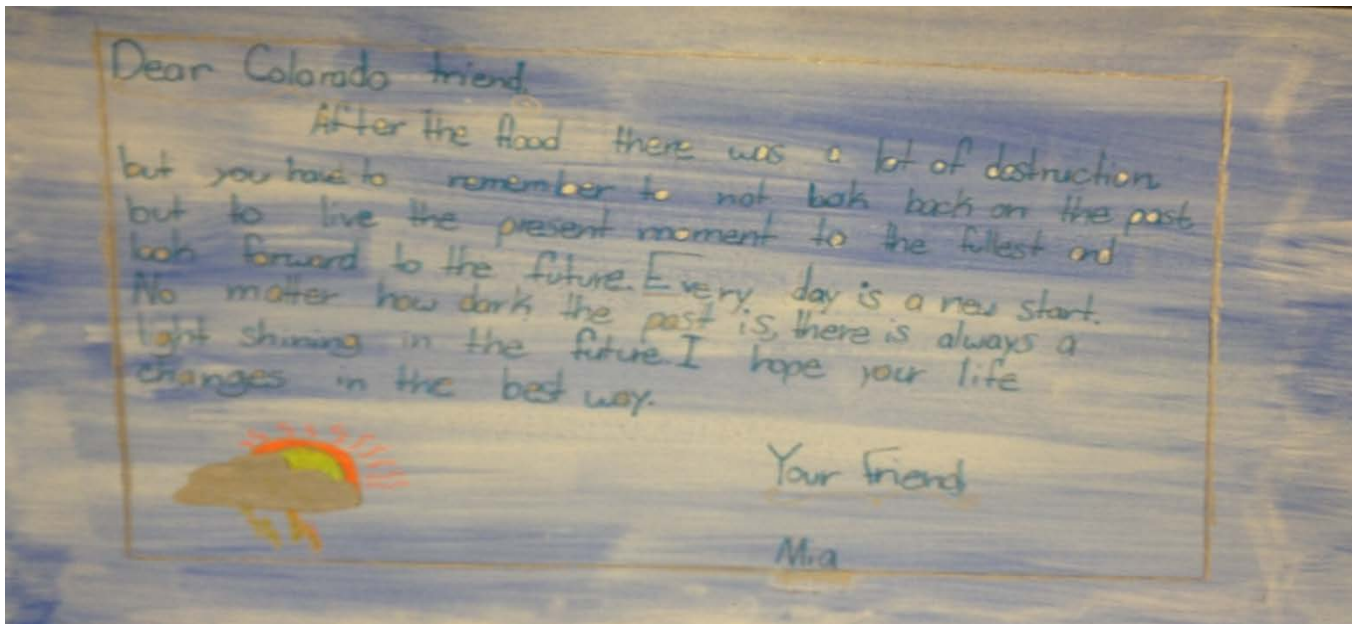 Dear Colorado friend,
After the flood there was a lot of destruction
but you have to remember to not look back on the past,
but to live the present moment to the fullest and
look forward to the future. Every day is a new start.
No matter how dark the past is, there is always a
light shining in the future. I hope your life
changes in the best way.
Your friend,
Mia